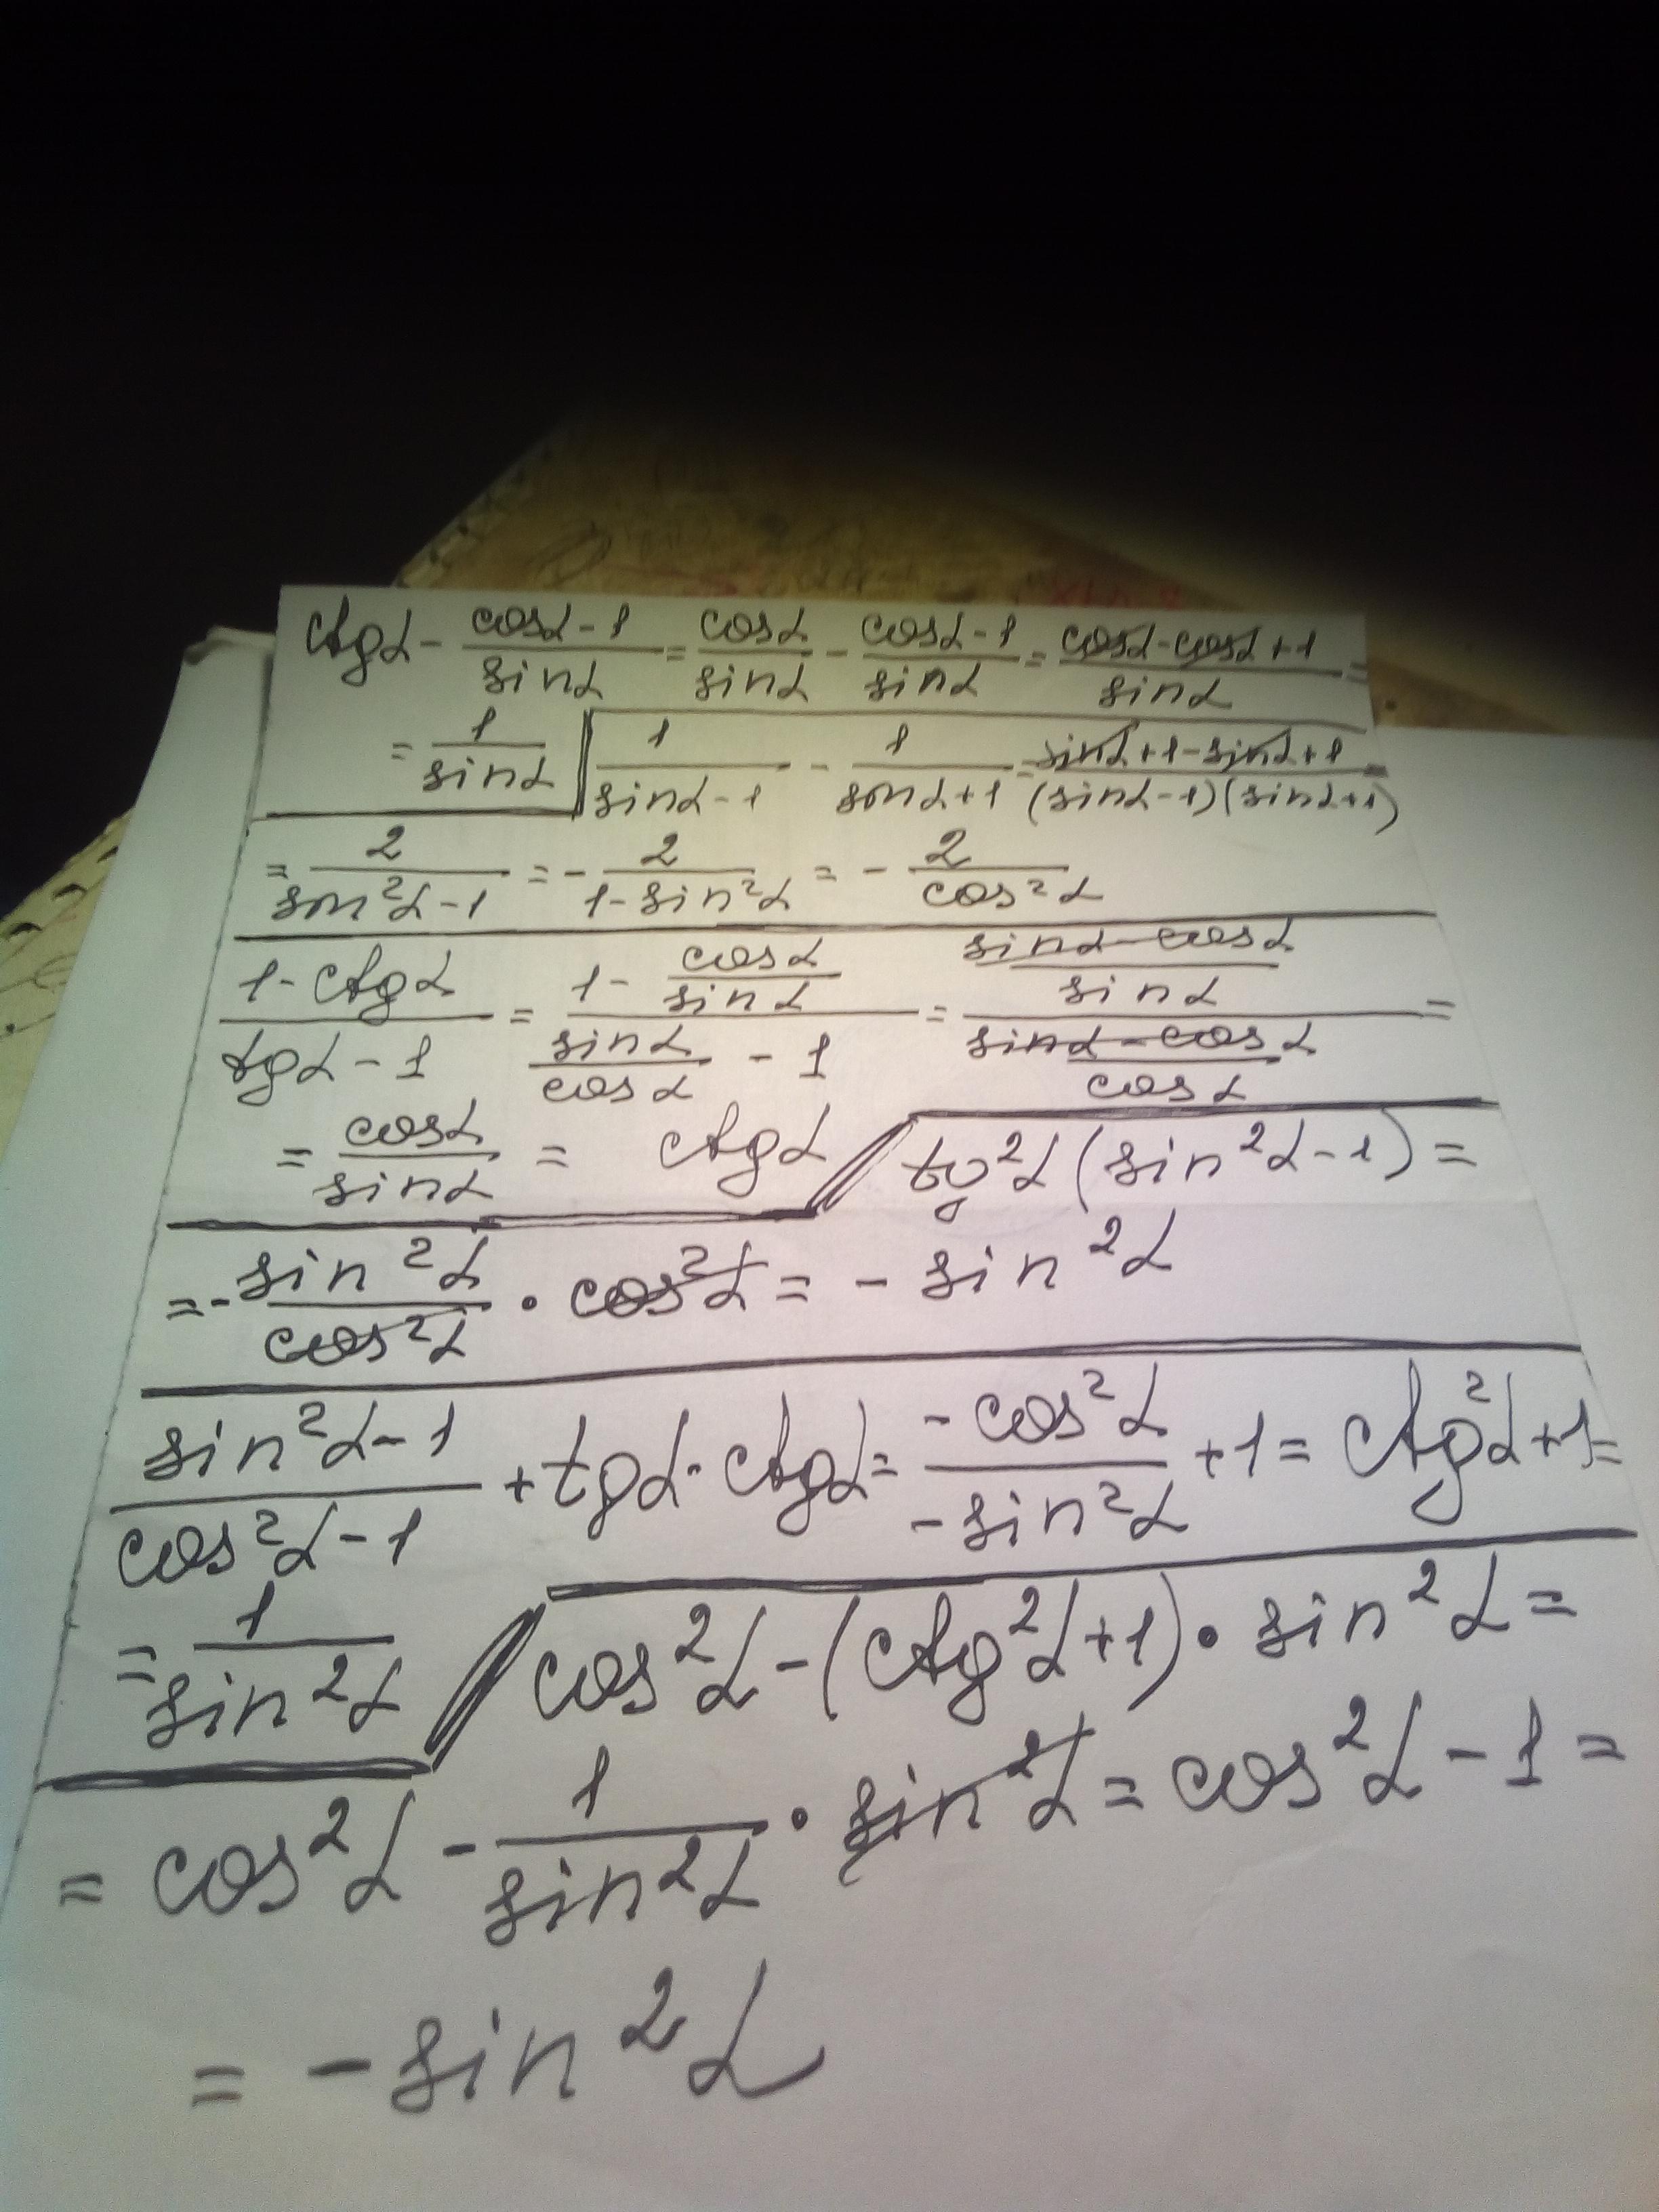 ctgα - (cosα-1)/(sinα) = (cosα)/(sinα) - (cosα-1)/(sinα) = (cosα-cosα+1)/(sinα) =
= 1/(sinα)
1/(sinα-1) - 1/(sinα+1) = (sinα+1-sinα+1)/((sinα-1)(sinα+1)) =
= 2/(sin²α-1) = - 2/(1-sin²α) = - 2/(cos²α)
(1-ctgα)/(tgα-1) = (1 - (cosα)/(sinα))/((sinα)/(cosα) - 1) = ((sinα-cosα)/(sinα))/((sinα-cosα)/(cosα)) =
= (cosα)/(sinα) = ctgα
tg²α(sin²α-1) =
= - (sin²α)/(cos²α) · cos²α = - sin²α
(sin²α-1)/(cos²α-1) + tgα · ctgα = (-cos²α)/(-sin²α) + 1 = ctg²α+1 =
= 1/(sin²α)
cos²α - (ctg²α+1) · sin²α =
= cos²α - 1/(sin²α) · sin²α = cos²α - 1 =
= - sin²α